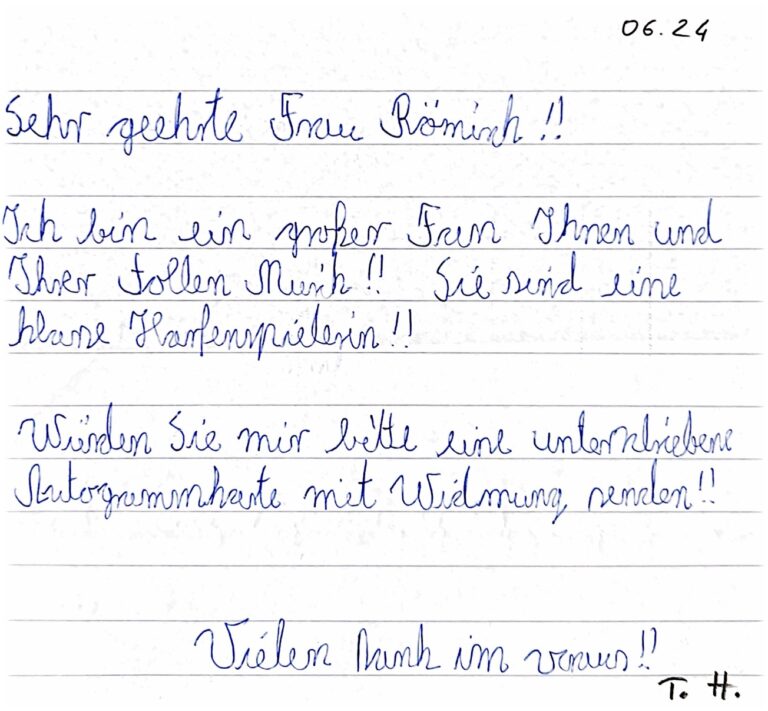 06.24
Sehr geehrte Frau Römisch!!
Ich bin ein großer Fan Ihnen und
Ihrer tollen Musik!! Sie sind eine
klasse Harfenspielerin!!
Würden Sie mir bitte eine unterschriebene
Autogrammkarte mit Widmung senden!!
Vielen Dank im voraus!!
T. H.